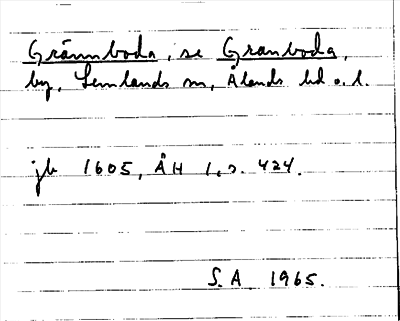 Grännboda, se Granboda,
by, Lemlands sn, Ålands hd o. l.
jb 1605, ÅH 1, s. 424.
S. A. 1965.